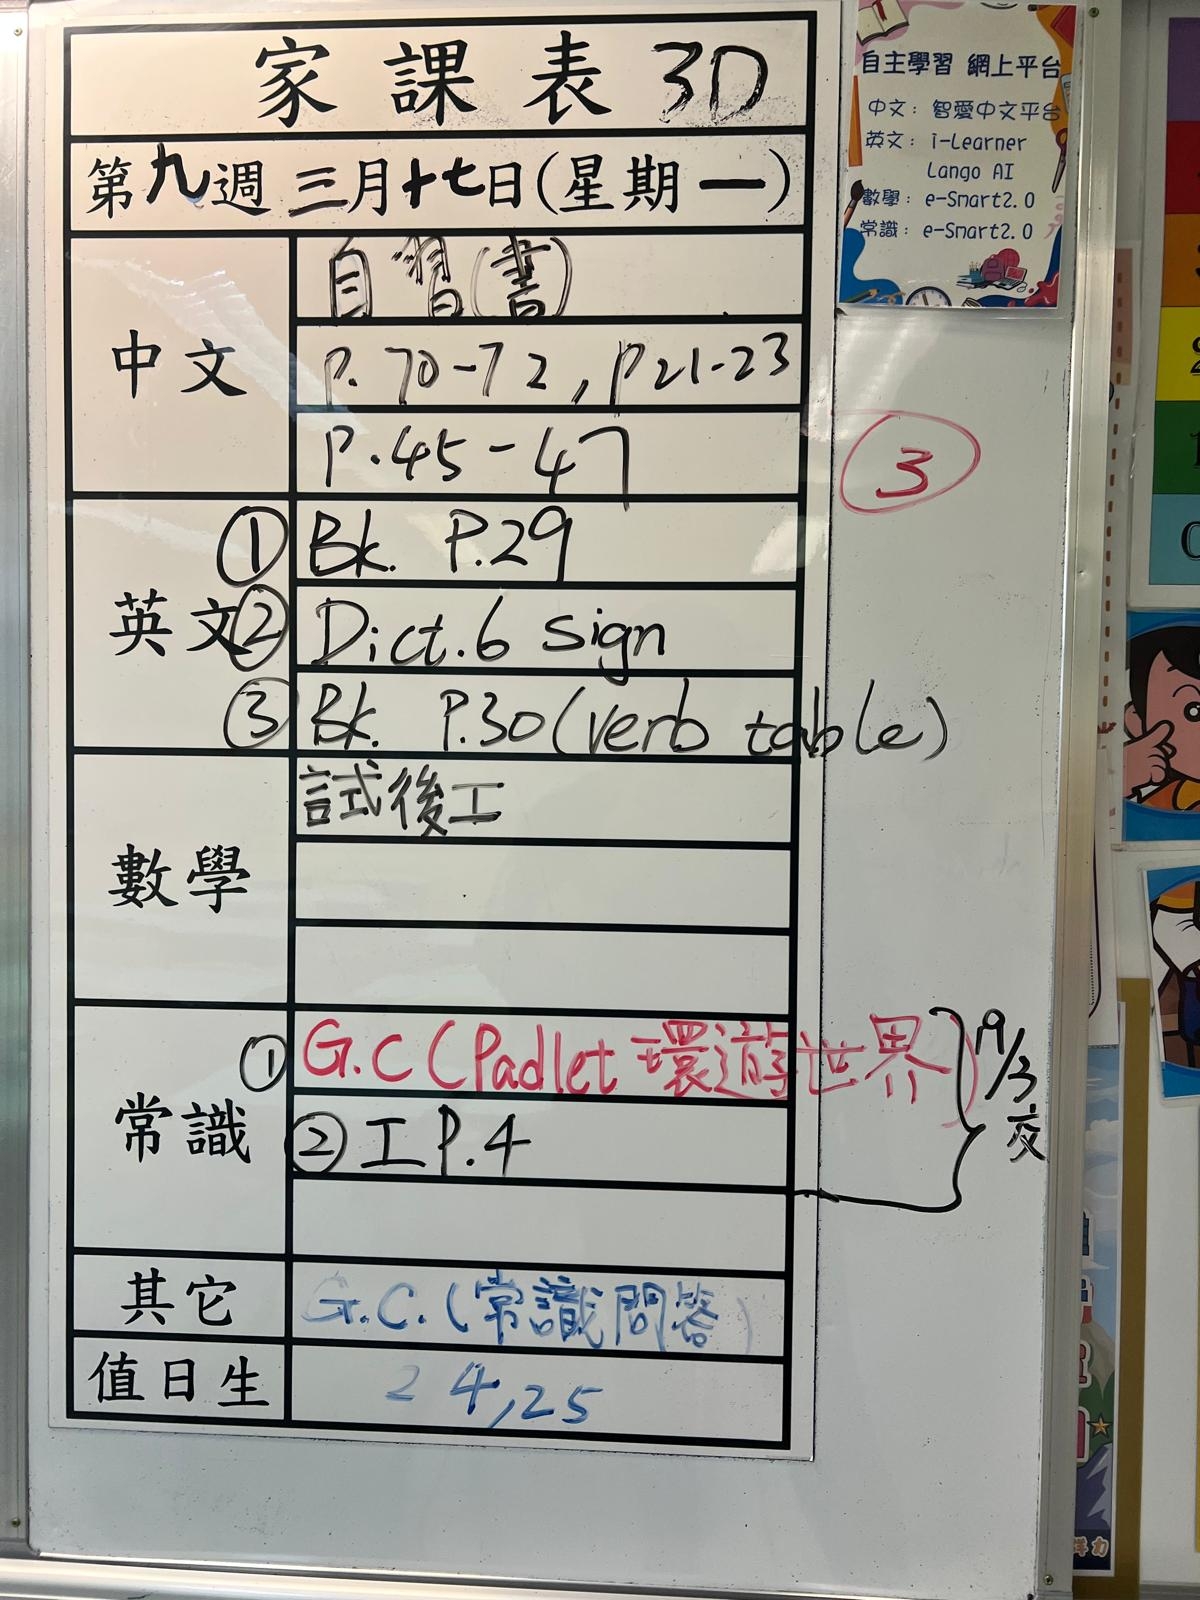 家課表 3D
第九週 三月十七日(星期一)
中文
自習(書)
P.70-72, P21-23
P.45-47
③
英文
① Bk. P.29
② Dict.6 sign
③ Bk. P.30(verb table)
數學
試後工
常識
① G.C(Padlet 環遊世界)
② 工 P.4
19/3交
其它
G.C.(常識問答)
值日生
24,25
自主學習 網上平台
中文：智愛中文平台
英文：i-Learner
Lango AI
數學：e-Smart2.0
常識：e-Smart2.0